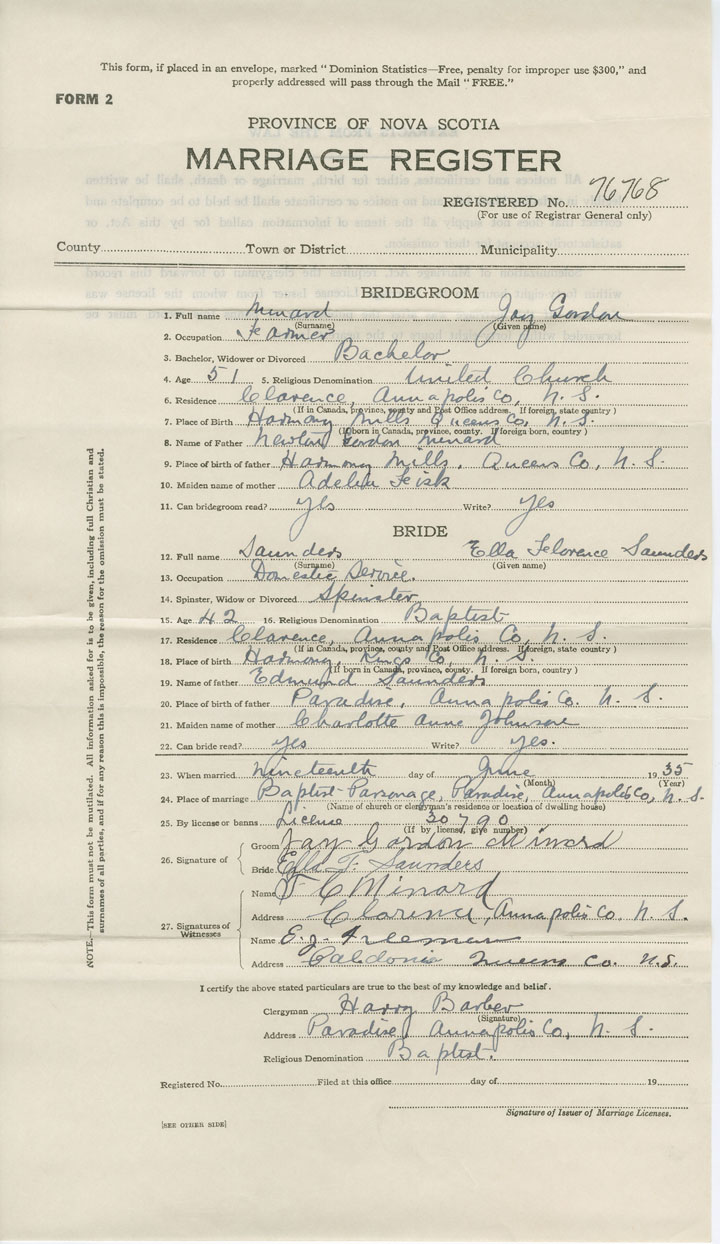 This form, if placed in an envelope, marked "Dominion Statistics—Free, penalty for improper use $300," and
properly addressed will pass through the Mail "FREE."
FORM 2
PROVINCE OF NOVA SCOTIA
MARRIAGE REGISTER
REGISTERED No. 76768
(For use of Registrar General only)
County Town or District Municipality
BRIDEGROOM
1. Full name Minard Jay Gordon
(Surname) (Given name)
2. Occupation Farmer
3. Bachelor, Widower or Divorced Bachelor
4. Age 51 5. Religious Denomination United Church
6. Residence Clarence, Annapolis Co, N. S.
(If in Canada, province, county and Post Office address. If foreign, state country)
7. Place of Birth Harmony Mills Queens Co, N. S.
(If born in Canada, province, county. If foreign born, country)
8. Name of Father Newton Gordon Minard
9. Place of birth of father Harmony Mills, Queens Co, N. S.
10. Maiden name of mother Adelia
11. Can bridegroom read? yes Write? yes
BRIDE
12. Full name Saunders Ella Florence Saunders
(Surname) (Given name)
13. Occupation Domestic Service.
14. Spinster, Widow or Divorced Spinster
15. Age 42 16. Religious Denomination Baptist
17. Residence Clarence, Annapolis Co, N. S.
(If in Canada, province, county and Post Office address. If foreign, state country)
18. Place of birth Harmony, Kings Co, N. S.
(If born in Canada, province, county. If foreign born, country)
19. Name of father Edmund Saunders
20. Place of birth of father Paradise, Annapolis Co. N. S.
21. Maiden name of mother Charlotte Anne Johnson
22. Can bride read? yes Write? yes.
23. When married nineteenth day of June 1935
(Month) (Year)
24. Place of marriage Baptist Parsonage, Paradise, Annapolis Co, N. S.
(Name of church or clergyman's residence or location of dwelling house)
25. By license or banns License 30790
(If by license, give number)
26. Signature of Groom Jay Gordon Minard
Bride Ella F. Saunders
27. Signatures of Witnesses
Name F C Minard
Address Clarence, Annapolis Co. N. S.
Name E. J. Freeman
Address Caledonia Queens Co. N.S.
I certify the above stated particulars are true to the best of my knowledge and belief.
Clergyman Harry Barber
(Signature)
Address Paradise, Annapolis Co, N. S.
Religious Denomination Baptist.
Registered No. Filed at this office day of 19
Signature of Issuer of Marriage Licenses.
[SEE OTHER SIDE]
NOTE.—This form must not be mutilated. All information asked for is to be given, including full Christian and
surnames of all parties, and if for any reason this is impossible, the reason for the omission must be stated.